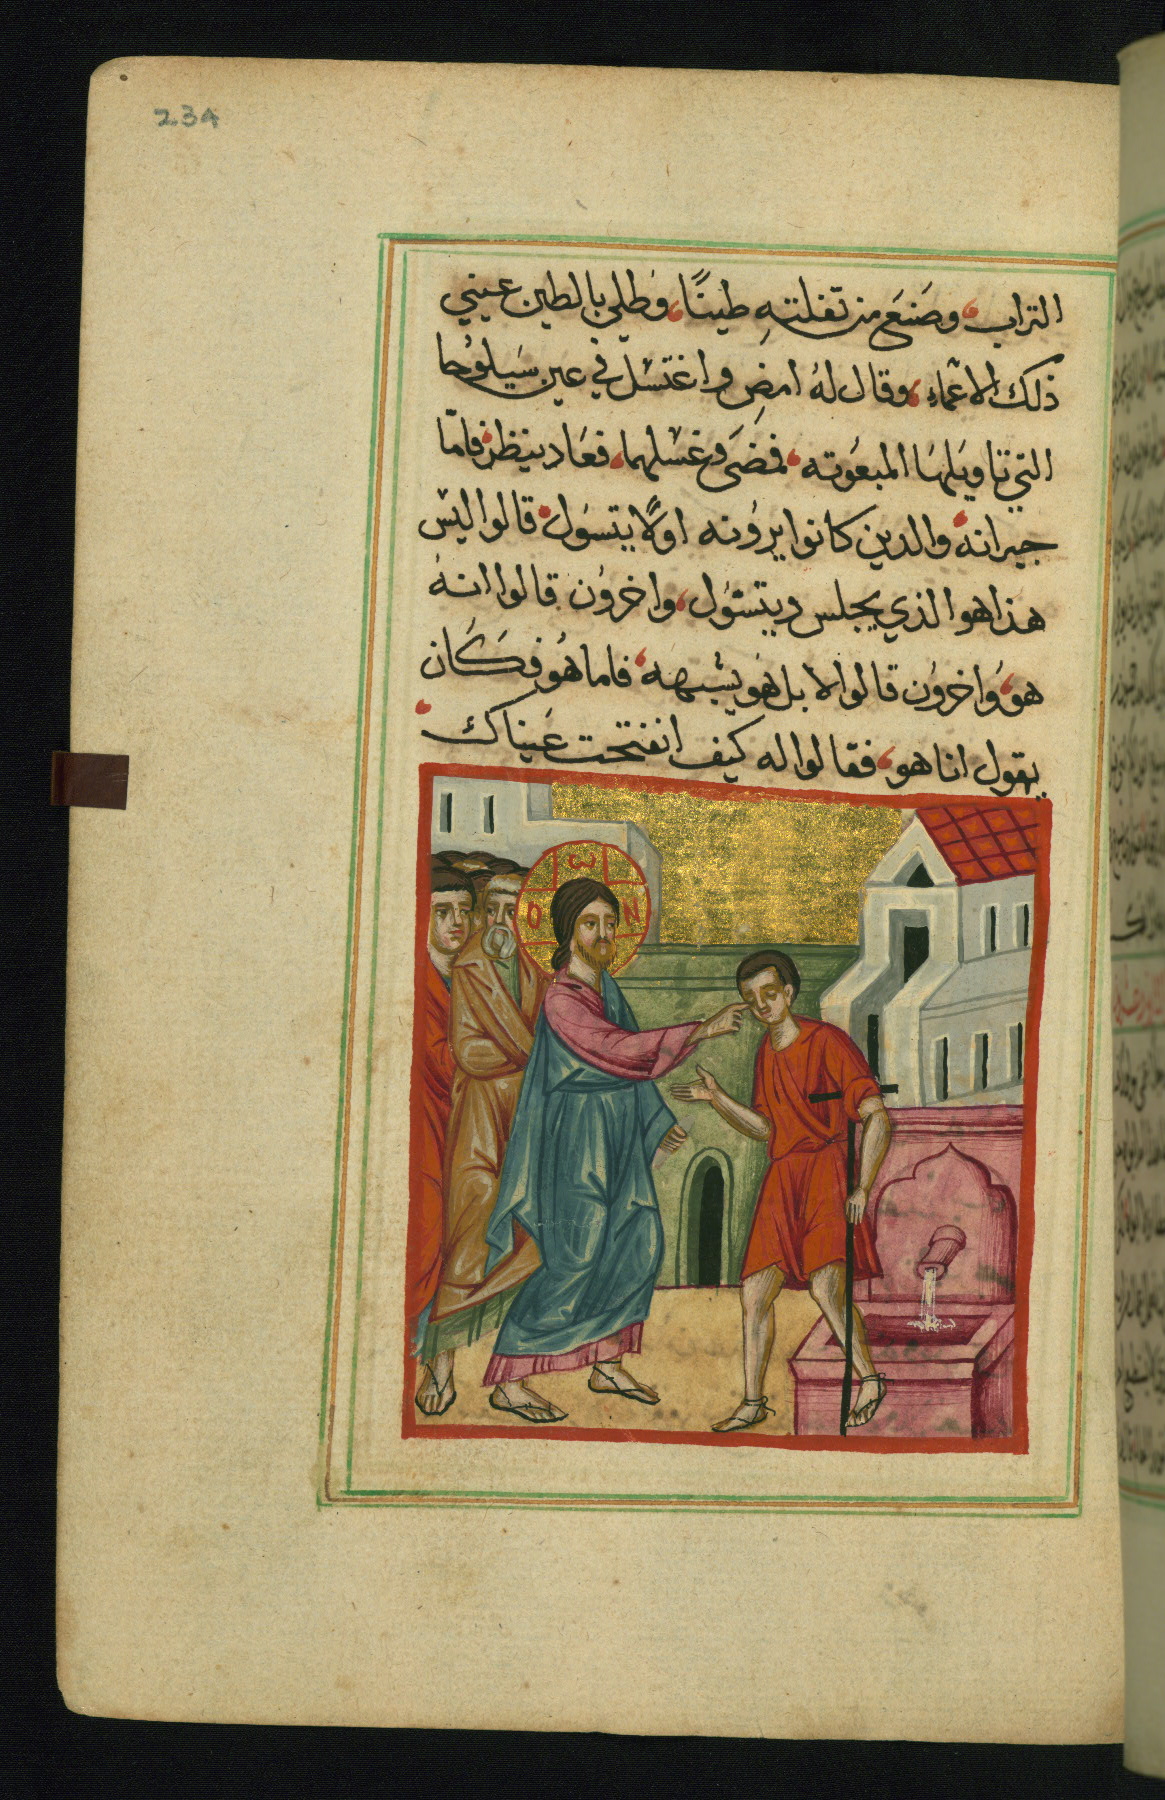 234
التراب، وصَنعَ من تفلتهِ طينًا، وطلى بالطين عيني
ذلك الاعماء، وقال لهُ امضِ واغتسل في عين سَيلوُحا
التي تاويلهَا المبعوَته، فمضىَ وغسلهما، فعَاد ينظر، فامّا
جيرانه، والدين كانوا يروُنه اولًا يتسوَل، قالوا اليس
هذا هوا الذي يجلس ويتسوُل، واخروُن قالوا انهُ
هوَ، وَاخروُن قالوا لا بل هوَ يشبههَ، فاما هوُ فكَان
يقول انا هو، فقالوا له كيف انفتحت عَيناك،
Ο Ω Ν